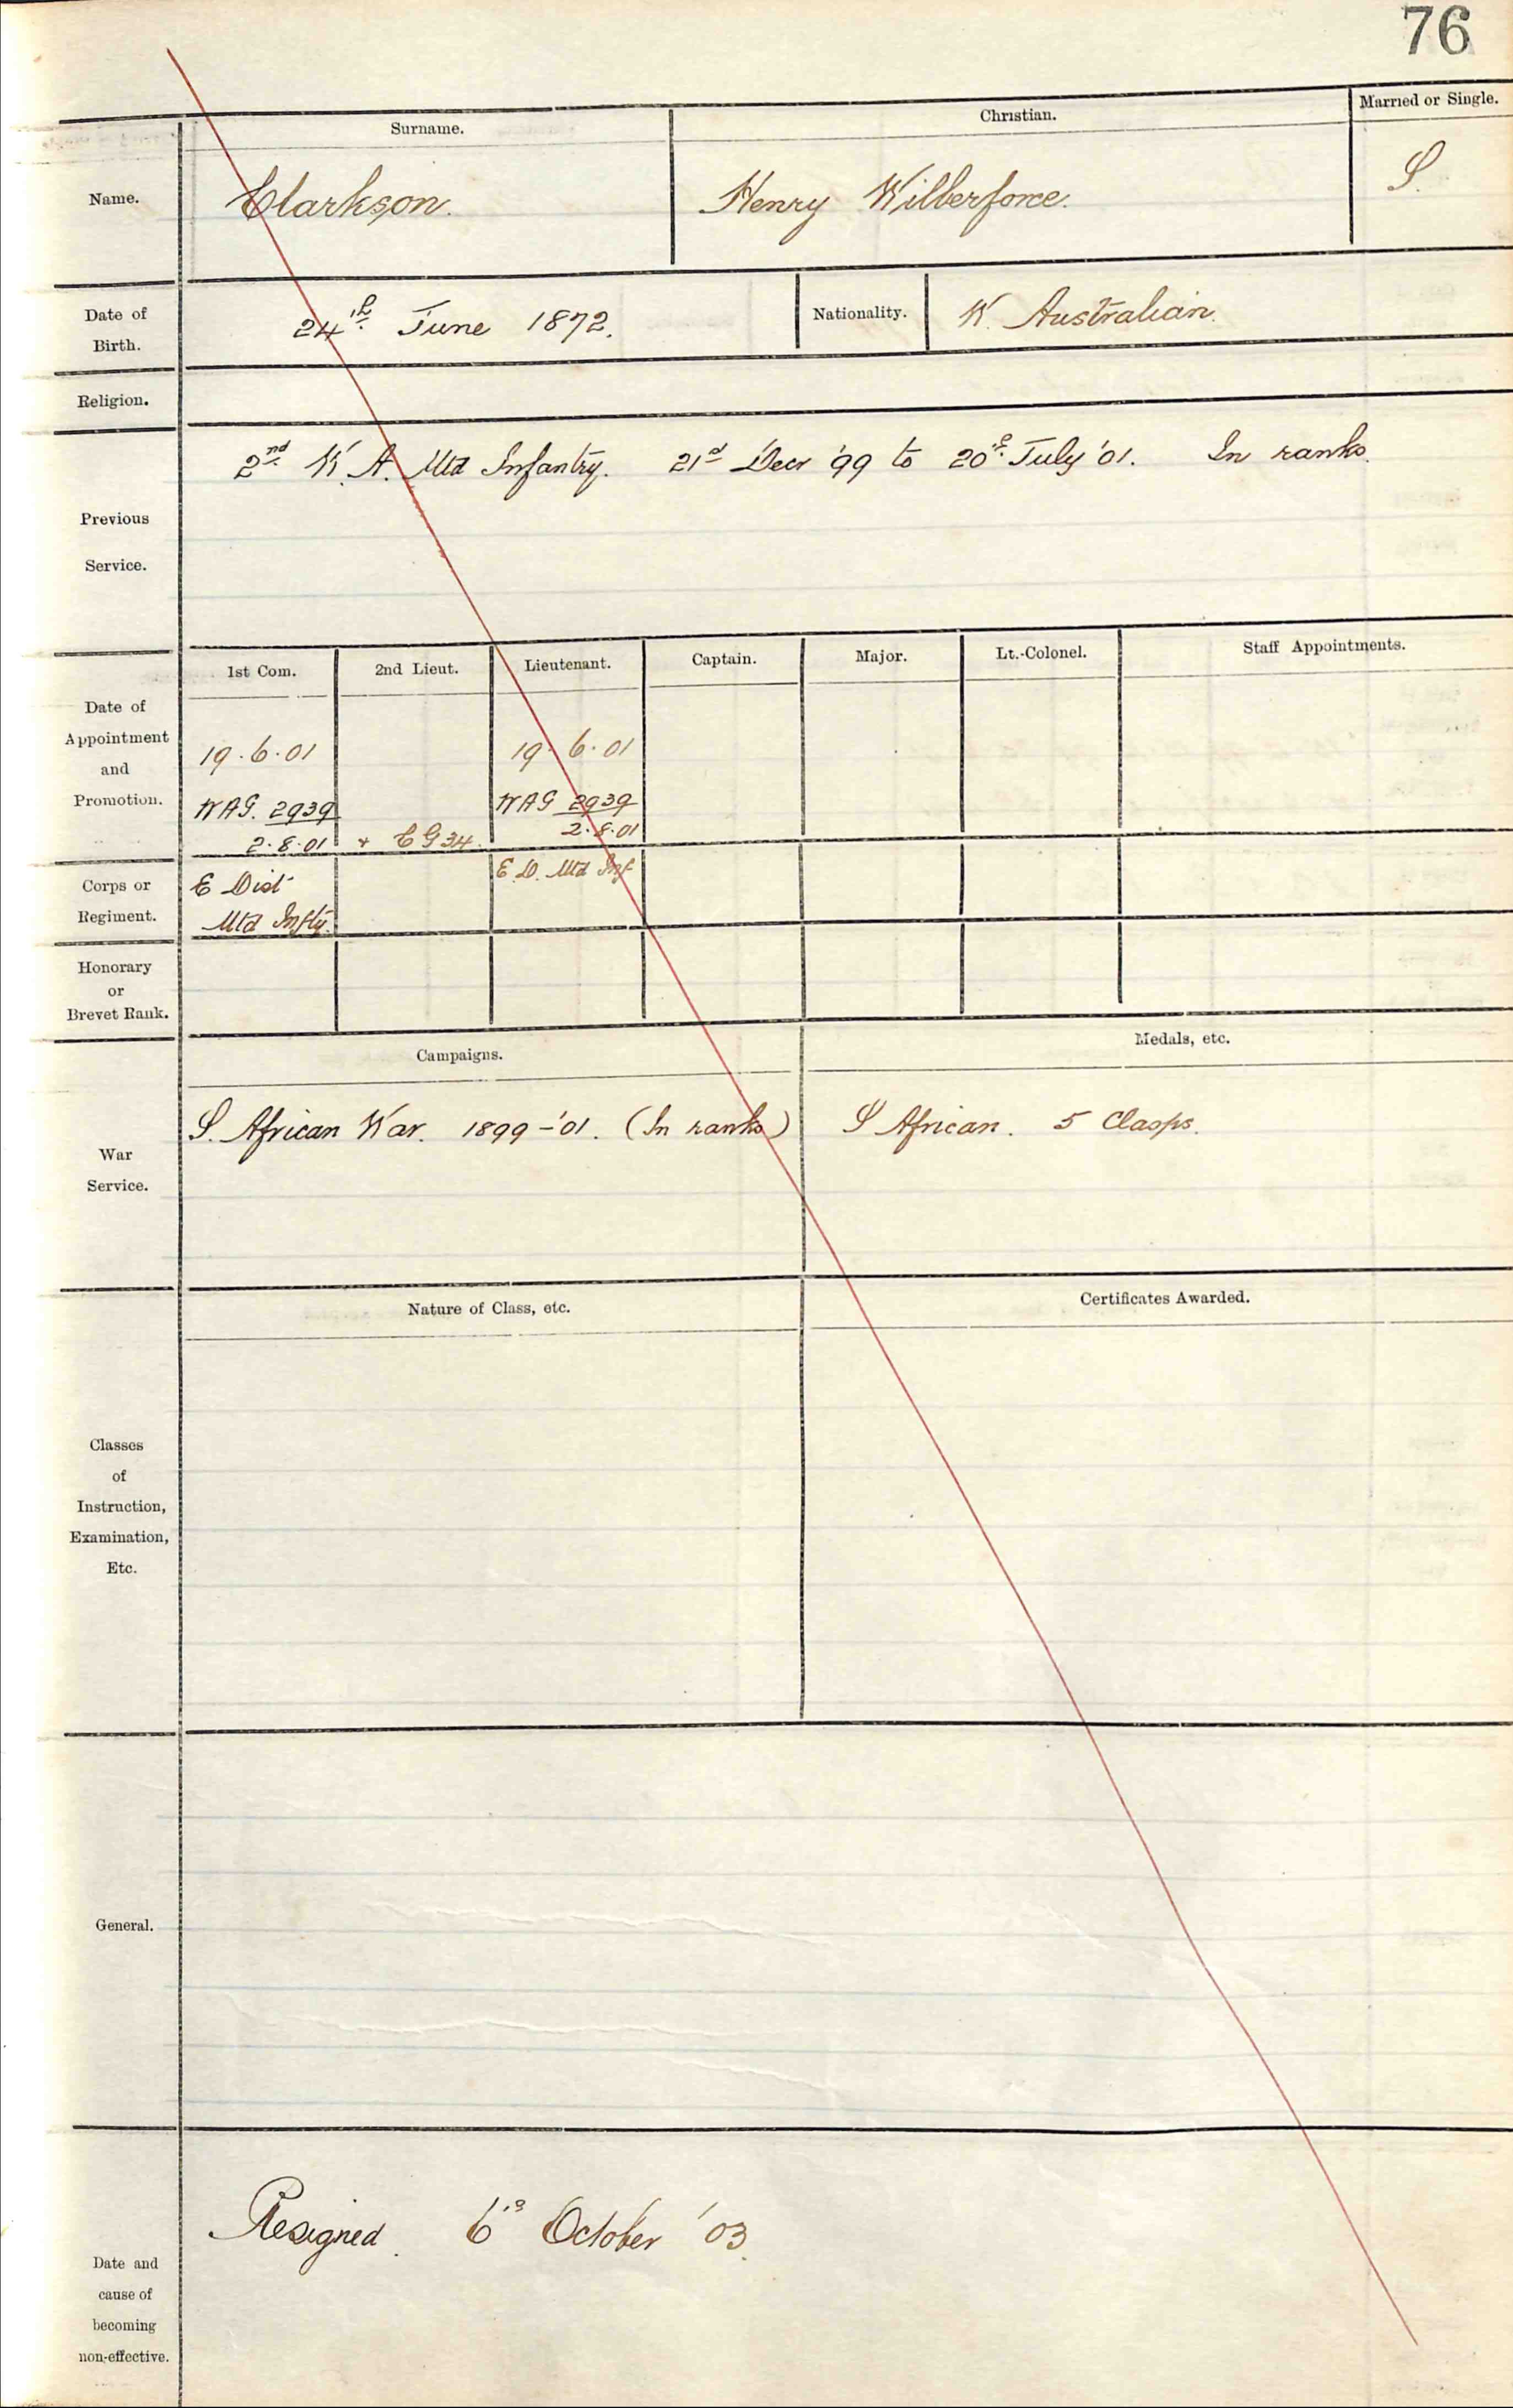 76
Surname.
Christian.
Married or Single.
Name.
Clarkson.
Henry Wilberforce.
S.
Date of
Birth.
24th June 1872.
Nationality.
W. Australian.
Religion.
2nd W. A. Mtd Infantry. 21st Decr '99 to 20th July '01. In ranks.
Previous
Service.
1st Com.
2nd Lieut.
Lieutenant.
Captain.
Major.
Lt.-Colonel.
Staff Appointments.
Date of
Appointment
and
Promotion.
19.6.01
19.6.01
WAG. 2939
WAG 2939
2.8.01
+ CG 34.
2.8.01
Corps or
Regiment.
E Dist
Mtd Infty.
E.D. Mtd Inf
Honorary
or
Brevet Rank.
Campaigns.
Medals, etc.
War
Service.
S. African War. 1899-'01. (In ranks)
S African. 5 Clasps.
Nature of Class, etc.
Certificates Awarded.
Classes
of
Instruction,
Examination,
Etc.
General.
Resigned. 6th October '03.
Date and
cause of
becoming
non-effective.